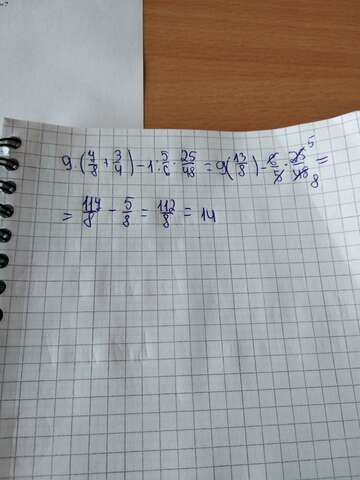 9 (7/8 + 3/4) - 1 · 5/6 · 25/48 = 9(13/8) - 6/5 · 25/48 5 8 =
= 117/8 - 5/8 = 112/8 = 14